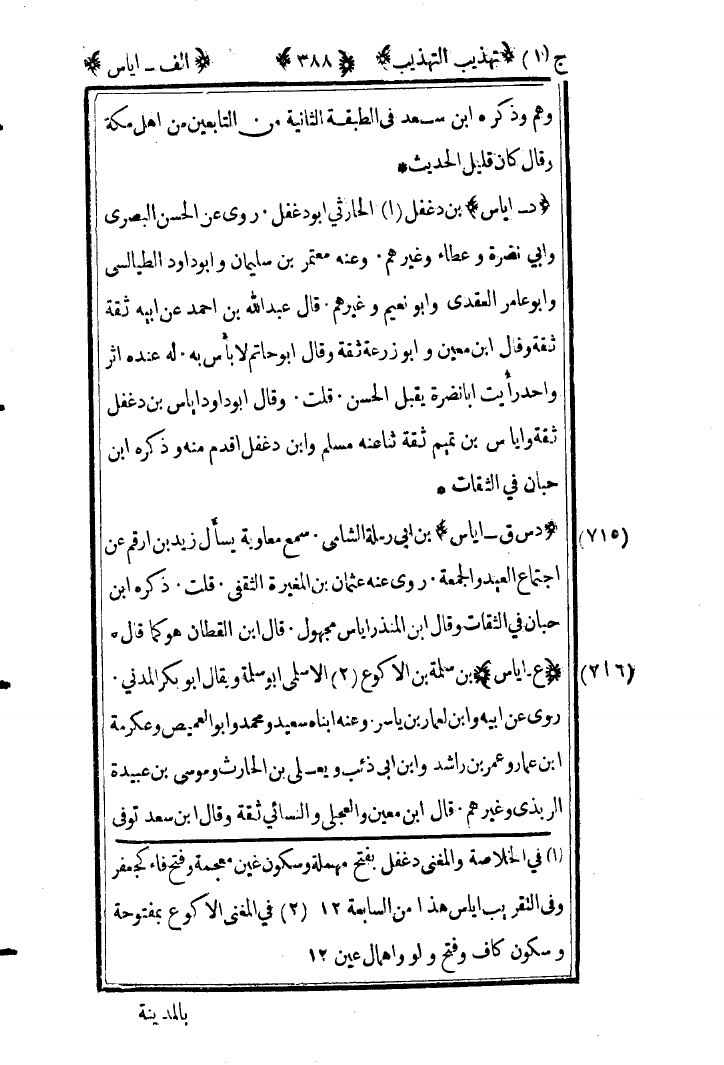 ج (١) ﴿تهذيب التهذيب﴾ ﴿٣٨٨﴾ ﴿الف ـ اياس﴾
وهم وذكره ابن سعد فى الطبقة الثانية من التابعين من اهل مكة
وقال كان قليل الحديث*
﴿د ـ اياس﴾ بن دغفل (١) الحارثي ابو دغفل ۰ روى عن الحسن البصرى
وابي نضرة و عطاء وغيرهم ۰ وعنه معتمر بن سليمان و ابو داود الطيالسى
وابو عامر العقدى وابو نعيم و غيرهم ۰ قال عبدالله بن احمد عن ابيه ثقة
ثقة وقال ابن معين و ابو زرعة ثقة وقال ابو حاتم لا بأس به ۰ له عنده اثر
واحد رأيت ابا نضرة يقبل الحسن ۰ قلت ۰ وقال ابو داود اياس بن دغفل
ثقة واياس بن تميم ثقة ثنا عنه مسلم وابن دغفل اقدم منه و ذكره ابن
حبان في الثقات *
(٧١٥) ﴿دس ق ـ اياس﴾ بن ابى رملة الشامى ۰ سمع معاوية يسأل زيد بن ارقم عن
اجتماع العيد والجمعة ۰ روى عنه عثمان بن المغيرة الثقفى ۰ قلت ۰ ذكره ابن
حبان في الثقات وقال ابن المنذر اياس مجهول ۰ قال ابن القطان هو كما قال *
(٧١٦) ﴿ع ـ اياس﴾ بن سلمة بن الاكوع (٢) الاسلمى ابو سلمة و يقال ابو بكر المدني ۰
روى عن ابيه وابن لعمار بن ياسر ۰ وعنه ابناه سعيد و محمد وابو العميص و عكرمة
ابن عمار و عمر بن راشد وابن ابى ذئب و يعلى بن الحارث و موسى بن عبيدة
الربذى وغيرهم ۰ قال ابن معين والعجلى والنسائي ثقة وقال ابن سعد توفى
(١) في الخلاصة والمغنى دغفل بفتح مهملة وسكون غين معجمة وفتح فاء كجعفر
وفى التقريب اياس هذا من السابعة ١٢ (٢) في المغنى الاكوع بمفتوحة
و سكون كاف وفتح واو واهمال عين ١٢
بالمدينة